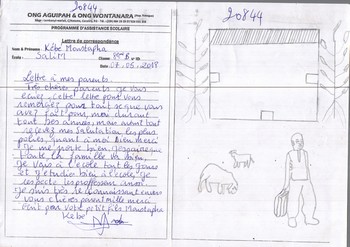 20844
ONG AGUIPAH & ONG WONTANARA
PROGRAMME D'ASSISTANCE SCOLAIRE
Lettre de correspondance
Nom & Prénoms: Kébé Moustapha
Ecole: SaliM Classe: N°
Du 07.05.2018
Lettre à mes parents.
Très chères parents je vous
cette lettre pour vous
remercier pour tout se que vous
avez fait pour moi durant
tout ses années, mais avant tout
recevez mes salutation les plus
polies, quant à moi bien merci
je me porte bien j'espère que
toute la famille va bien,
je vais à l'école tout les jours
et j'étudie bien à l'école je
respecte les professeur aussi.
je suis très reconnaissant envers
vous chères parent mille merci
c'est pour votre petit fils Moustapha
Kébé
20844